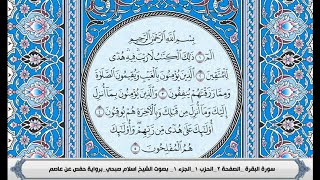 بِسْمِ اللَّهِ الرَّحْمَٰنِ الرَّحِيمِ
الٓمٓ ۝١ ذَٰلِكَ الْكِتَابُ لَا رَيْبَ ۛ فِيهِ ۛ هُدًى
لِّلْمُتَّقِينَ ۝٢ الَّذِينَ يُؤْمِنُونَ بِالْغَيْبِ وَيُقِيمُونَ الصَّلَاةَ
وَمِمَّا رَزَقْنَاهُمْ يُنفِقُونَ ۝٣ وَالَّذِينَ يُؤْمِنُونَ بِمَا أُنزِلَ
إِلَيْكَ وَمَا أُنزِلَ مِن قَبْلِكَ وَبِالْآخِرَةِ هُمْ يُوقِنُونَ ۝٤
أُولَٰئِكَ عَلَىٰ هُدًى مِّن رَّبِّهِمْ ۖ وَأُولَٰئِكَ
هُمُ الْمُفْلِحُونَ ۝٥
سورة البقرة _الصفحة ٢_الحزب ١_الجزء ١_ بصوت الشيخ اسلام صبحي_برواية حفص عن عاصم